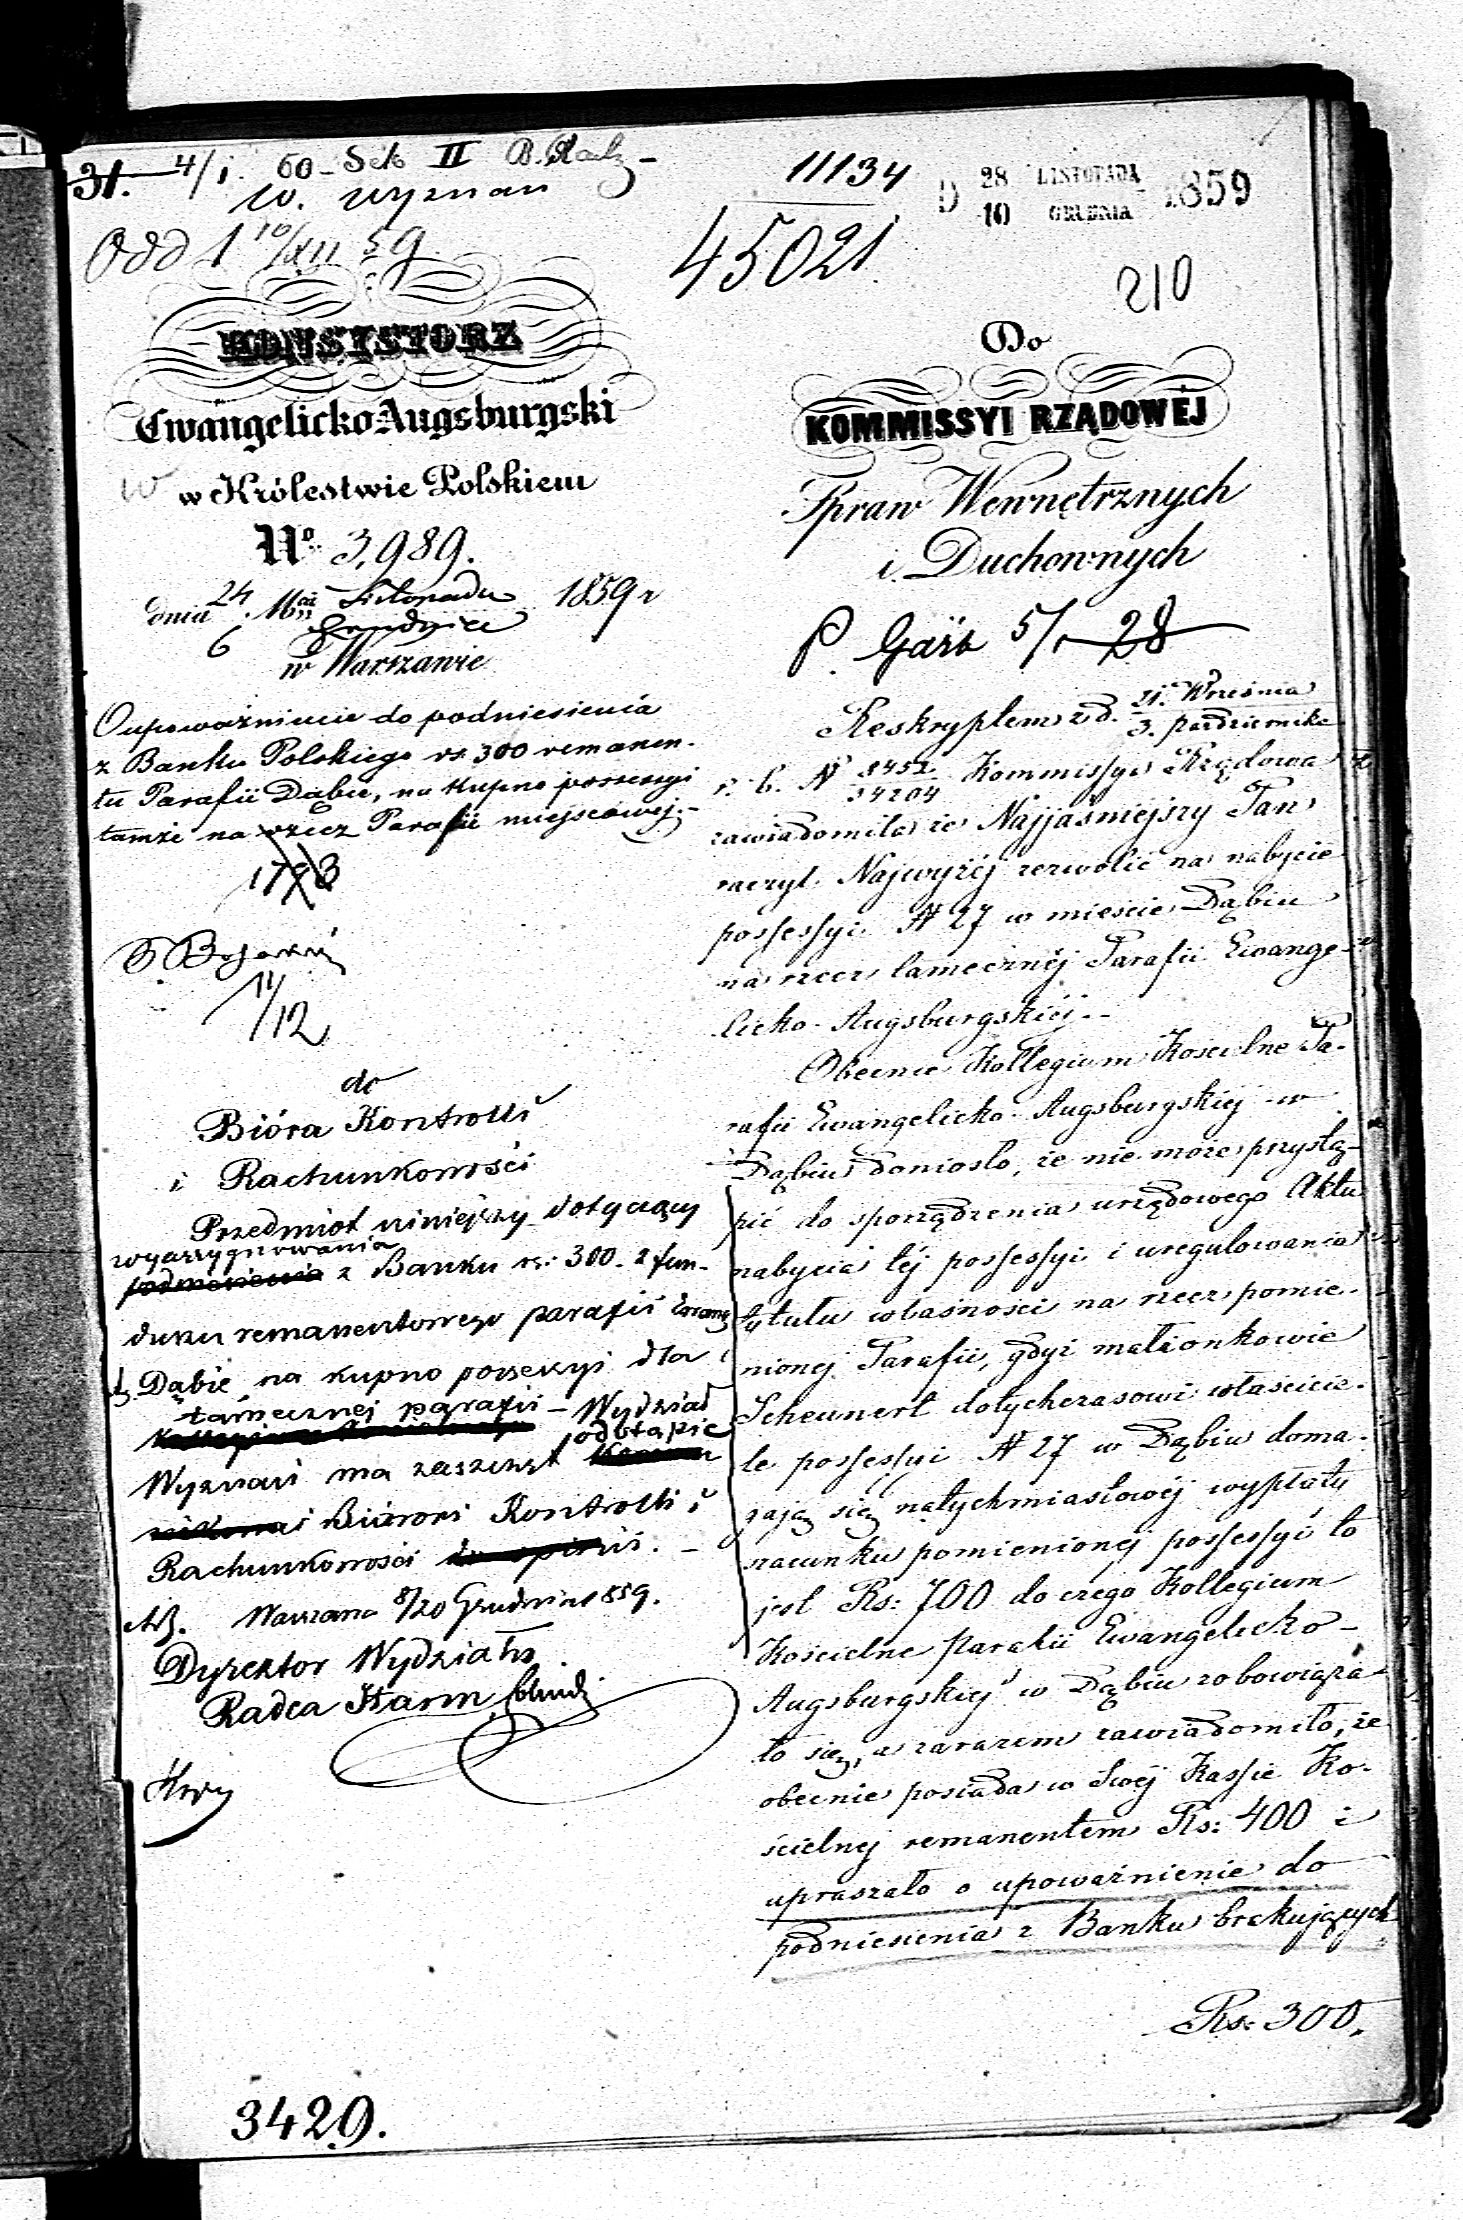 31. 4/1. 60 - Sek II B.
W. Wyznań
Odd 1 10/XII 59
11134
45021
D 28 LISTOPADA 1859
10 GRUDNIA
210
KONSYSTORZ
Ewangelicko Augsburgski
w Królestwie Polskiem
No 3,989.
dnia 24 Listopada 1859 r
6 Grudnia
w Warszawie
Oupoważnienie do podniesienia
z Banku Polskiego rs 300 remanen-
tu Parafii Dąbie, na kupno possessyi
tamże na rzecz Parafii miejscowej.-
1793
11/12
do
Bióra Kontrolli
i Rachunkowości
Przedmiot niniejszy dotyczący
wyassygnowania
podniesienia z Banku rs: 300. z fun-
duszu remanentowego parafii Ewang
Dąbie, na kupno possessyi dla
tamecznej parafii - Wydział
odstąpić
Wyznań ma zaszczyt
Biórowi Kontrolli i
Rachunkowości do opinii. -
Warszawa 8/20 Grudnia 1859.
Dyrektor Wydziału
Radca Stanu
3429.
Do
KOMMISSYI RZĄDOWÉJ
Spraw Wewnętrznych
i Duchownych
P. 5/1 28
Reskryptem z d. 21. Września
3. Października
r. b. N 8452
34204 Kommissya Rządowa
zawiadomiła że Najjaśniejszy Pan
raczył Najwyżéj zezwolić na nabycie
possessyi N 27 w mieście Dąbiu
na rzecz tamecznéj Parafii Ewange-
licko-Augsburgskiéj.-
Obecnie Kollegium Kościelne Pa-
rafii Ewangelicko-Augsburgskiej w
Dąbiu doniosło, że nie może przystą-
pić do sporządzenia urzędowego Aktu
nabycia téj possessyi i uregulowania
tytułu własności na rzecz pomie-
nionej Parafii, gdyż małżonkowie
Scheunert dotychczasowi właścicie-
le possessyi N 27 w Dąbiu doma-
gają się natychmiastowéj wypłaty
szacunku pomienionej possessyi to
jest Rs: 700 do czego Kollegium
Kościelne Parafii Ewangelicko-
Augsburgskiej w Dąbiu zobowiąza
ło się, a zarazem zawiadomiło, że
obecnie posiada w Swéj Kassie Ko-
ścielnej remanentem Rs: 400 i
upraszało o upoważnienie do
podniesienia z Banku brakujących
Rs: 300.